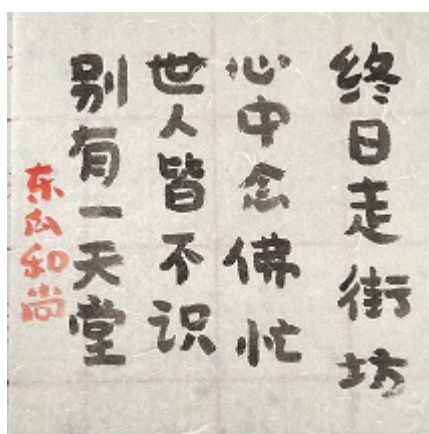 终日走街坊
心中念佛忙
世人皆不识
别有一天堂
东瓜和尚